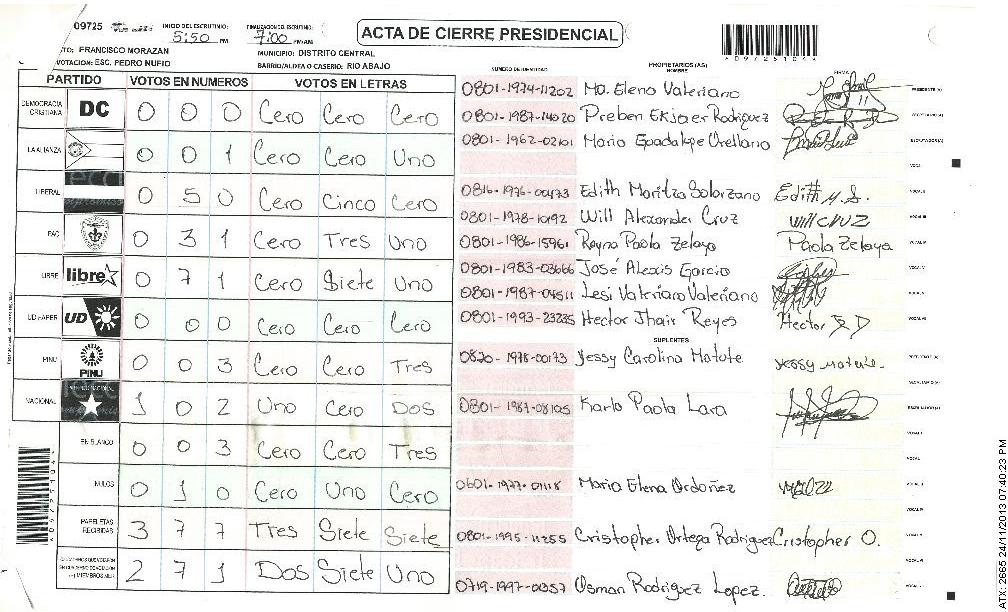 09725
INICIO DEL ESCRUTINIO: 5:50 PM
FINALIZACION DEL ESCRUTINIO: 7:00 PM/AM
ACTA DE CIERRE PRESIDENCIAL
TO: FRANCISCO MORAZAN
MUNICIPIO: DISTRITO CENTRAL
VOTACION: ESC. PEDRO NUFIO
BARRIO/ALDEA O CASERIO: RIO ABAJO
PARTIDO VOTOS EN NUMEROS VOTOS EN LETRAS
DEMOCRACIA CRISTIANA DC 0 0 0 Cero Cero Cero
LA ALIANZA 0 0 1 Cero Cero Uno
LIBERAL 0 5 0 Cero Cinco Cero
PAC 0 3 1 Cero Tres Uno
LIBRE libre 0 7 1 Cero Siete Uno
UD-FAPER UD 0 0 0 Cero Cero Cero
PINU PINU 0 0 3 Cero Cero Tres
NACIONAL 1 0 2 Uno Cero Dos
EN BLANCO 0 0 3 Cero Cero Tres
NULOS 0 1 0 Cero Uno Cero
PAPELETAS RECIBIDAS 3 7 7 Tres Siete Siete
2 7 1 Dos Siete Uno
NUMERO DE IDENTIDAD PROPIETARIOS (AS) NOMBRE FIRMA
0801-1974-11202 Ma. Elena Valeriano
0801-1987-14020 Preben Ekjaer Rodriguez
0801-1962-02101 Maria Guadalupe Orellano
0816-1976-00473 Edith Maritza Solorzano Edith M.S.
0801-1978-10192 Will Alexander Cruz Will CRUZ
0801-1986-15961 Reyna Paola Zelaya Paola Zelaya
0801-1983-03666 José Alexis Garcia
0801-1987-04511 Lesi Valeriano Valeriano
0801-1993-23235 Hector Jhair Reyes Hector
SUPLENTES
0820-1978-00173 Yessy Carolina Matute Yessy Matute.
0801-1987-08105 Karla Paola Lara
0601-1977-01118 Maria Elena Ordoñez
0801-1995-11255 Cristopher Ortega Rodriguez Cristopher O.
0719-1997-00357 Osman Rodriguez Lopez.
24/11/2013 07:40:23 PM